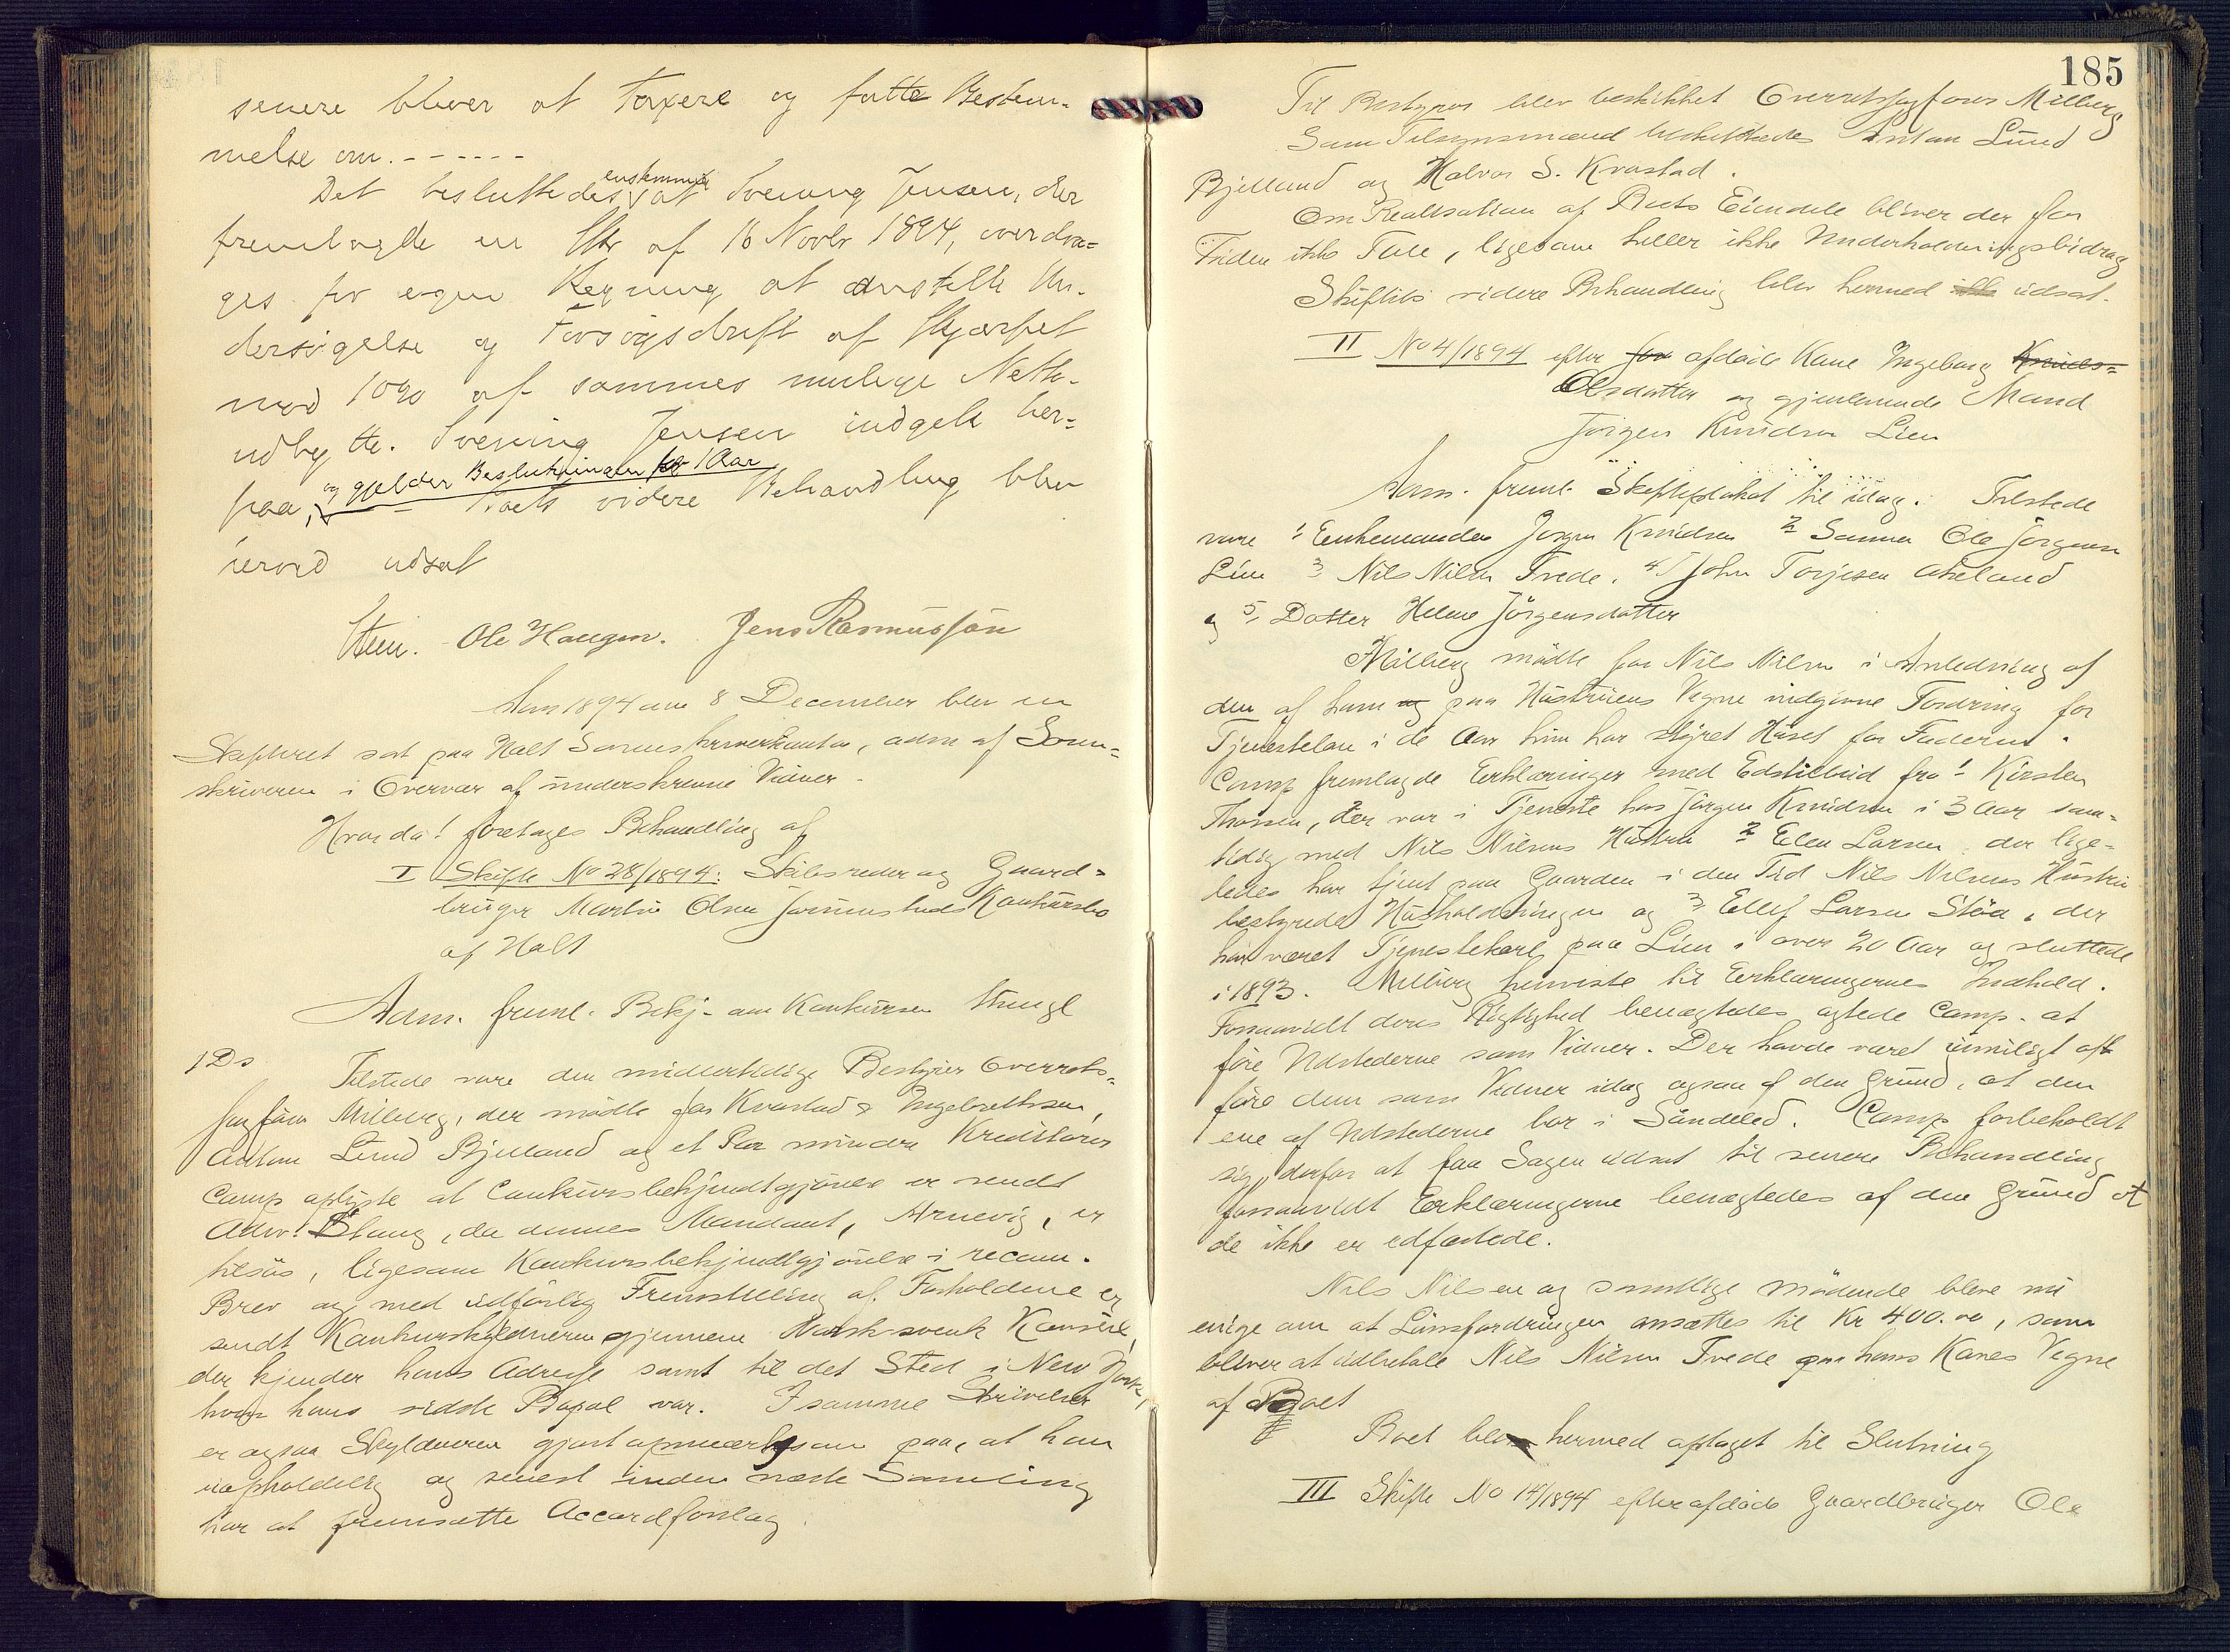 senere bliver at taxere og fatte Bestem-
melse om. - - - - - -
Det besluttedes enstemmig at Svening Jensen, der
fremlagde en Skr af 16 Novbr 1894, overdra=
ges for egen Regning at anstille Un-
dersøgelse og Forsøgsdrift af Skjærpet
mod 10% af sammes mulige Netto-
udbytte. Svening Jensen indgik her=
paa, og gjælder Beslutningen for 1 Aar
Boets videre Behandling blev
derved udsat
Stein. Ole Haugen. Jens Rasmussøn
Aar 1894 den 8 December blev en
Skifteret sat paa Holt Sorenskriverkontor, adm af Soren=
skriveren i Overvær af underskrevne Vidner.
Hvorda! foretages Behandling af
I Skifte No 28/1894: Skibsreder og Gaard=
bruger Martin Olsen Konkursbo
af Holt
Adm. freml. Bekj. om Konkursen
1 Ds Tilstede vare den midlertidige Bestyrer Overrets=
sagfører Milberg, der mødte for Kvastad & Ingebrethsen,
Anton Lund Bjelland og et Par mindre Kreditorer
Comp oplyste at Conkursbekjendtgjørelse er sendt
Adv! Stang, da dennes Mandant, Arnevig, er
tilsøs, ligesom Konkursbekjendtgjørelse i recom.
Brev og med udførlig Fremstilling af Forholdene er
sendt Konkursskyldneren gjennem Norsk-svensk Konsul,
der kjender hans Adresse samt til det Sted i New York,
hvor hans sidste Bopæl var. I samme Skrivelser
er ogsaa Skyldneren gjort opmærksom paa, at han
uopholdelig og senest inden næste Samling
har at fremsætte Accordforslag.
185
Til Bestyrer blev beskikket Overretssagfører Milberg
Som Tilsynsmænd beskikkedes Anton Lund
Bjelland og Halvor S. Kvastad.
Om Realisation af Boets Eiendele bliver der for
Tiden ikke Tale, ligesom heller ikke Underholdningsbidrag
Skiftets videre Behandling blev hermed udsat.
II No 4/1894 efter for afdøde Kone Ingeborg Knuds=
Olsdatter og gjenlevende Mand
Jørgen Knudsen Lien
Adm. freml. Skifteplakat til idag. Tilstede
vare 1 Enkemanden Jørgen Knudsen 2 Sønnen Ole Jørgensen
Lien 3 Nils Nilsen Tvede. 4 John Torjesen Ausland
og 5, Datter Helene Jörgensdatter
Milberg mødte for Nils Nilsen i Anledning af
den af ham og paa Hustruens Vegne indgivne Fordring for
Tjenesteløn i de Aar hun har styret Huset for Faderen.
Comp fremlagde Erklæringer med Edstilbud fra 1 Kirsten
Thorsen, der var i Tjeneste hos Jørgen Knudsen i 3 Aar sam=
tidig med Nils Nilsens Hustru 2 Elen Larsen, der lige=
ledes har tjent paa Gaarden i den Tid Nils Nilsens Hustru
bestyrede Husholdningen og 3 Ellef Larsen Støa, der
har været Tjenestekarl paa Lien i over 20 Aar og sluttede
i 1893. Milberg henviste til Erklæringernes Indhold.
Forsaavidt deres Rigtighed benægtedes agtede Comp. at
føre Udstederne som Vidner. Der havde været umuligt at
føre dem som Vidner idag ogsaa af den Grund, at den
ene af Udstederne bor i Söndeled. Comp forbeholdt
sig derfor at faa Sagen udsat til senere Behandling
forsaavidt Erklæringerne benægtedes af den Grund at
de ikke er edfæstede.
Nils Nilsen og samtlige mødende bleve nu
enige om at Lønsfordringen ansættes til Kr 400.00, som
bliver at udbetale Nils Nilsen Tvede paa hans Kones Vegne
af Boet
Boet blev hermed optaget til Slutning
III Skifte No 14/1894 efter afdøde Gaardbruger Ole